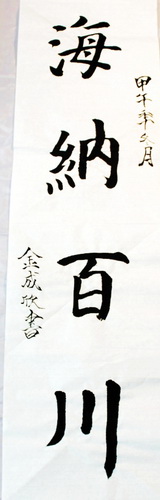 甲午年冬月
海納百川
金成欣書